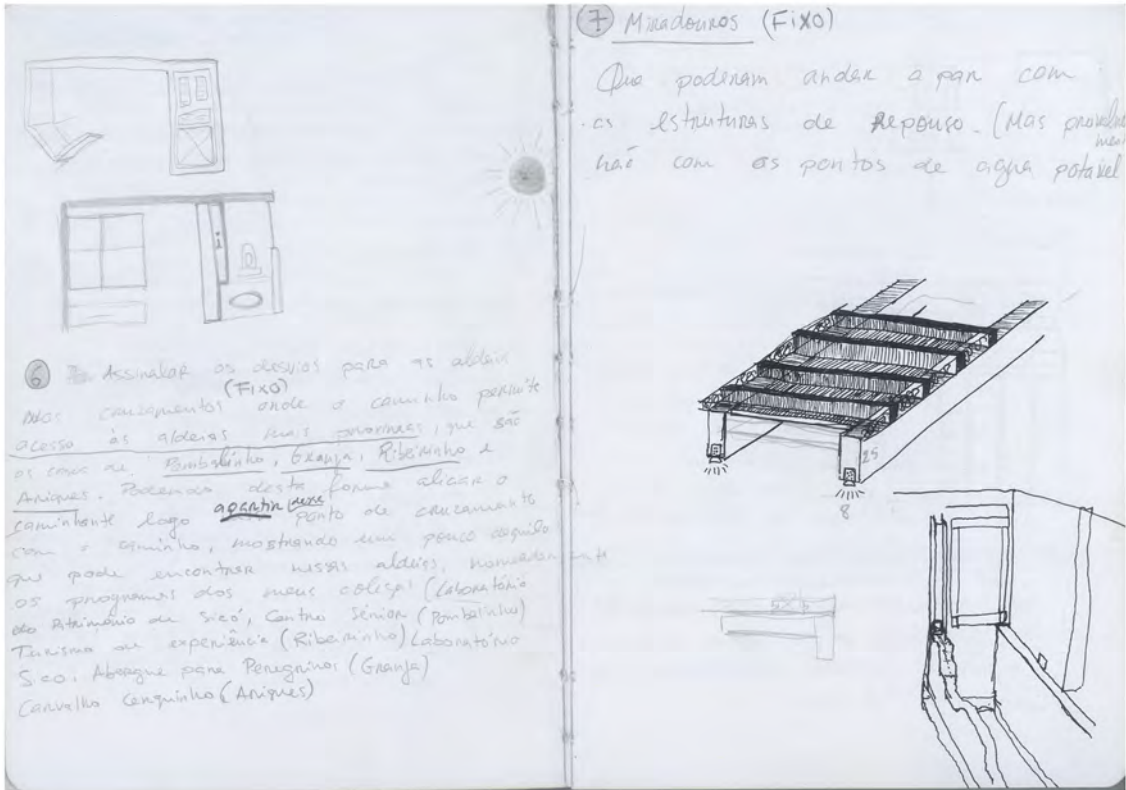 6 Assinalar os desvios para as aldeias
(Fixo)
nos cruzamentos onde o caminho permite
acesso às aldeias mais próximas, que são
os casos de Pombalinho, Granja, Ribeirinho e
Aniques. Podendo desta forma aliciar o
caminhante logo apartir desse ponto de cruzamento
com o caminho, mostrando um pouco daquilo
que pode encontrar nessas aldeias, nomeadamente
os programas dos meus colegas (Laboratório
do Património de Sicó, Centro Sénior (Pombalinho)
Turismo de experiência (Ribeirinho) Laboratório
Sico. Abergue para Peregrinos (Granja)
Carvalho Cerquinho (Aniques)
7 Miradouros (Fixo)
Que poderam andar a par com
as estruturas de Repouso. (Mas provavelmente
não com os pontos de agua potavel
25
8